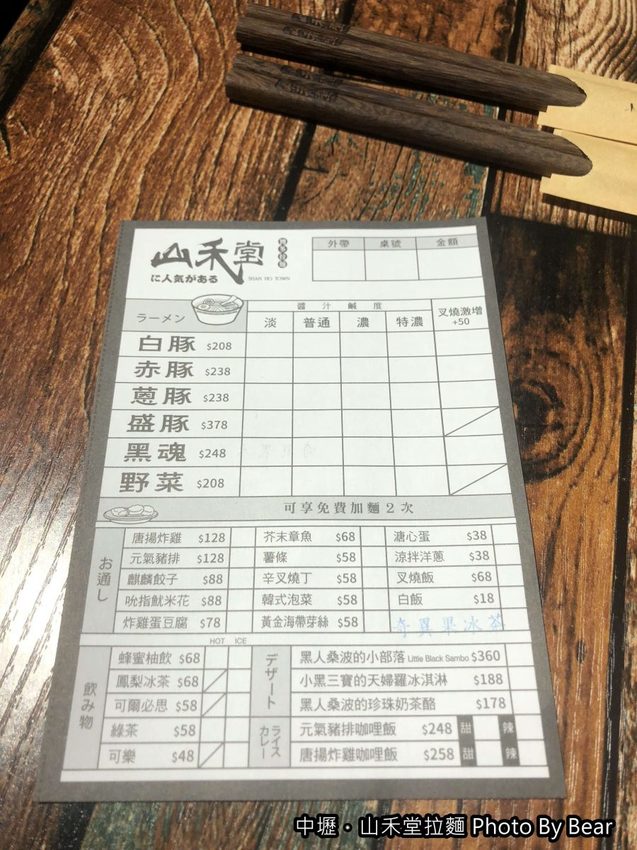 山禾堂
に人気がある SHAN HO TOWN
外帶 桌號 金額
ラーメン
醬汁鹹度
淡 普通 濃 特濃 叉燒激增 +50
白豚 $208
赤豚 $238
蔥豚 $238
盛豚 $378
黑魂 $248
野菜 $208
可享免費加麵2次
お通し
唐揚炸雞 $128 芥末章魚 $68 溏心蛋 $38
元氣豬排 $128 薯條 $58 涼拌洋蔥 $38
麒麟餃子 $88 辛叉燒丁 $58 叉燒飯 $68
吮指魷米花 $88 韓式泡菜 $58 白飯 $18
炸雞蛋豆腐 $78 黃金海帶芽絲 $58 奇異果冰茶
HOT ICE
飲み物
蜂蜜柚飲 $68
鳳梨冰茶 $68
可爾必思 $58
綠茶 $58
可樂 $48
デザート
黑人桑波的小部落 Little Black Sambo $360
小黑三寶的天婦羅冰淇淋 $188
黑人桑波的珍珠奶茶酪 $178
ライス カレー
元氣豬排咖哩飯 $248 甜 辣
唐揚炸雞咖哩飯 $258 甜 辣
中壢・山禾堂拉麵 Photo By Bear